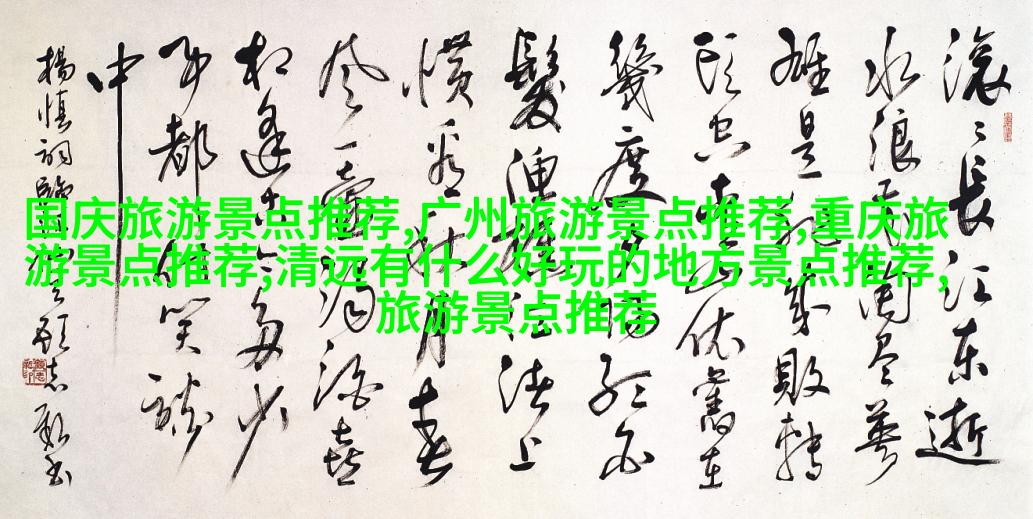 国庆旅游景点推荐,广州旅游景点推荐,重庆旅
游景点推荐,清远有什么好玩的地方景点推荐,
旅游景点推荐
滚〻長江東逝
水浪花淘盡英
雄是非成敗轉
頭空青山依舊在
幾度夕陽紅白
髮漁樵江渚上
慣看秋月春
風一壺濁酒喜
相逢古今多少
事都付笑談
中
楊慎詞臨